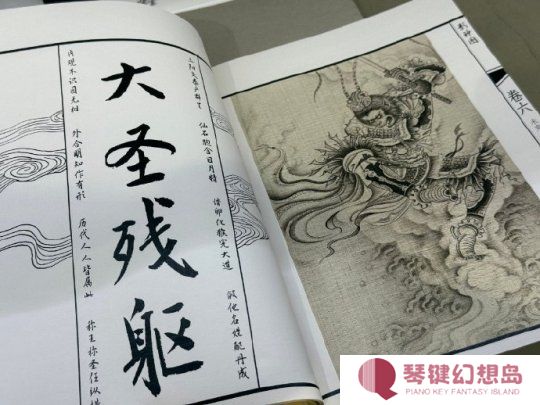 影神图
卷六
三阳交泰产群生 仙石胞含日月精 借卵化猴完大道 假他名姓配丹成
大圣残躯
内观不识因无相 外合明知作有形 历代人人皆属此 称王称圣任纵横
琴键幻想岛
PIANO KEY FANTASY ISLAND